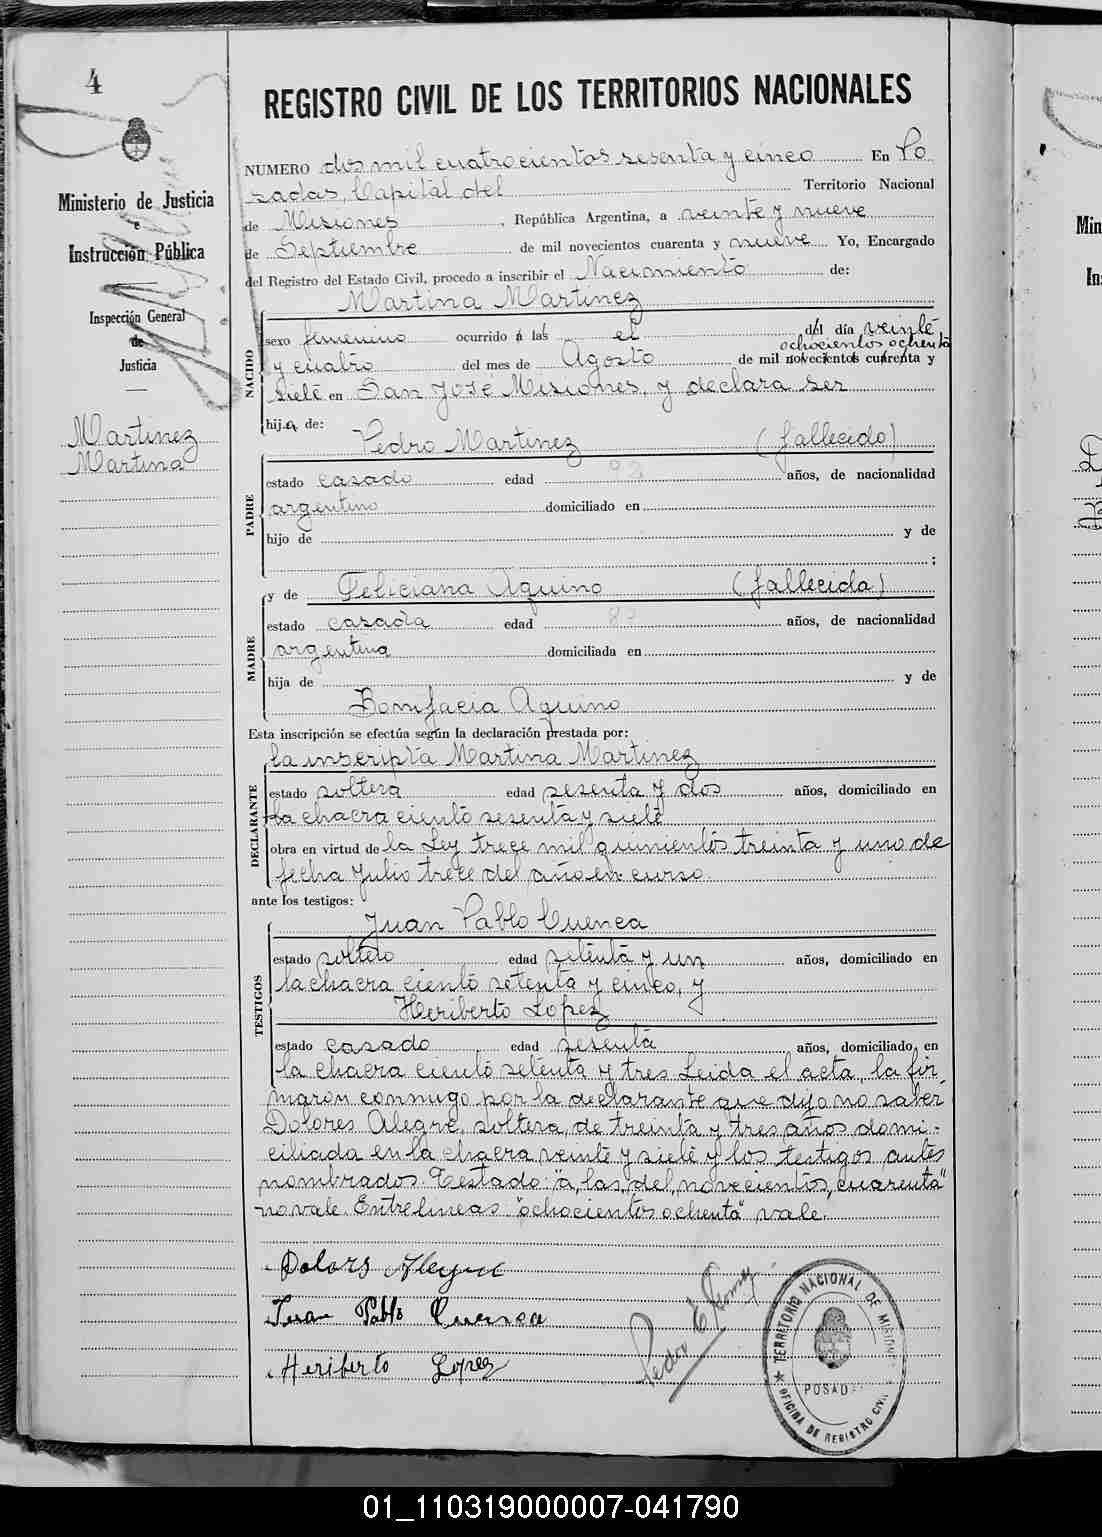 4
REGISTRO CIVIL DE LOS TERRITORIOS NACIONALES
Ministerio de Justicia
e
Instrucción Pública
Inspección General
de
Justicia
Martinez
Martina
NUMERO dos mil cuatrocientos sesenta y cinco En Po
sadas, Capital del Territorio Nacional
de Misiones, República Argentina, a veinte y nueve
de Septiembre de mil novecientos cuarenta y nueve Yo, Encargado
del Registro del Estado Civil, procedo a inscribir el Nacimiento de:
Martina Martinez
NACIDO
sexo femenino ocurrido á las el del día veinte
ochocientos ochenta
y cuatro del mes de Agosto de mil novecientos cuarenta y
siete en San José Misiones, y declara ser
hija de:
Pedro Martinez (fallecido)
PADRE
estado casado edad 93 años, de nacionalidad
argentino domiciliado en
hijo de y de
;
y de Feliciana Aquino (fallecida)
MADRE
estado casada edad años, de nacionalidad
argentina domiciliada en
hija de y de
Bonifacia Aquino
Esta inscripción se efectúa según la declaración prestada por:
la inscripta Martina Martinez
DECLARANTE
estado soltera edad sesenta y dos años, domiciliado en
la chacra ciento sesenta y siete
obra en virtud de la Ley trece mil quinientos treinta y uno de
fecha Julio trece del año en curso.
ante los testigos:
Juan Pablo Cuenca
TESTIGOS
estado soltero edad setenta y un años, domiciliado en
la chacra ciento setenta y cinco, y
Heriberto Lopez
estado casado edad sesenta años, domiciliado en
la chacra ciento setenta y tres Leida el acta, la fir
maron conmigo por la declarante que dijo no saber
Dolores Alegre, soltera, de treinta y tres años domi-
ciliada en la chacra veinte y siete y los testigos antes
nombrados. Testado: "a, las, del, novecientos, cuarenta"
no vale. Entrelineas "ochocientos ochenta" vale.
Dolores Alegre
Juan Pablo Cuenca
Heriberto Lopez
Pedro E.
TERRITORIO NACIONAL DE MISIONES
POSADAS
OFICINA DE REGISTRO CIVIL
Min
In
01_110319000007-041790